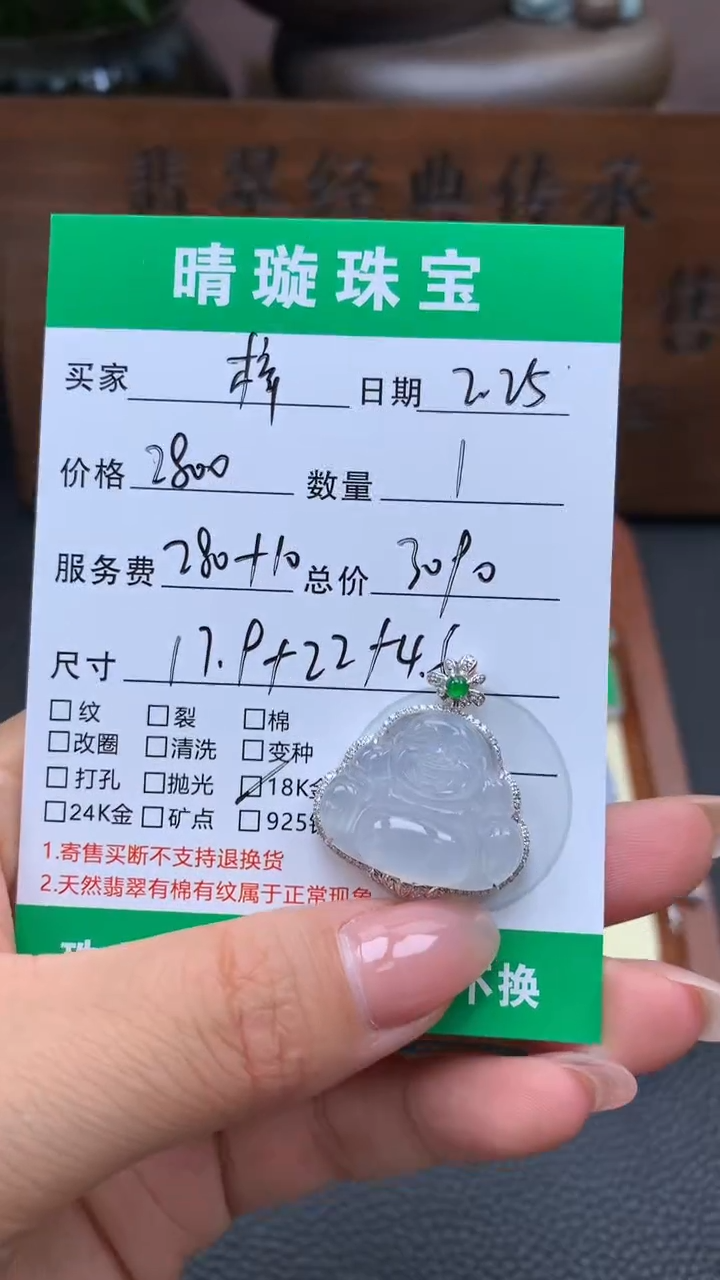 翡翠经典传承
晴璇珠宝
买家 梓 日期 2.25
价格 2800 数量 1
服务费 280+10 总价 3090
尺寸 17.9+22+4.
□纹 □裂 □棉
□改圈 □清洗 □变种
□打孔 □抛光 ☑18K金
□24K金 □矿点 □925
1.寄售买断不支持退换货
2.天然翡翠有棉有纹属于正常现象
不换